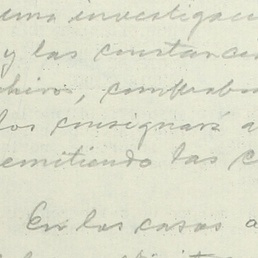 una investigaci
y las constanc
chivo, comproba
los consignará a
emitiendo las c
En los casos a